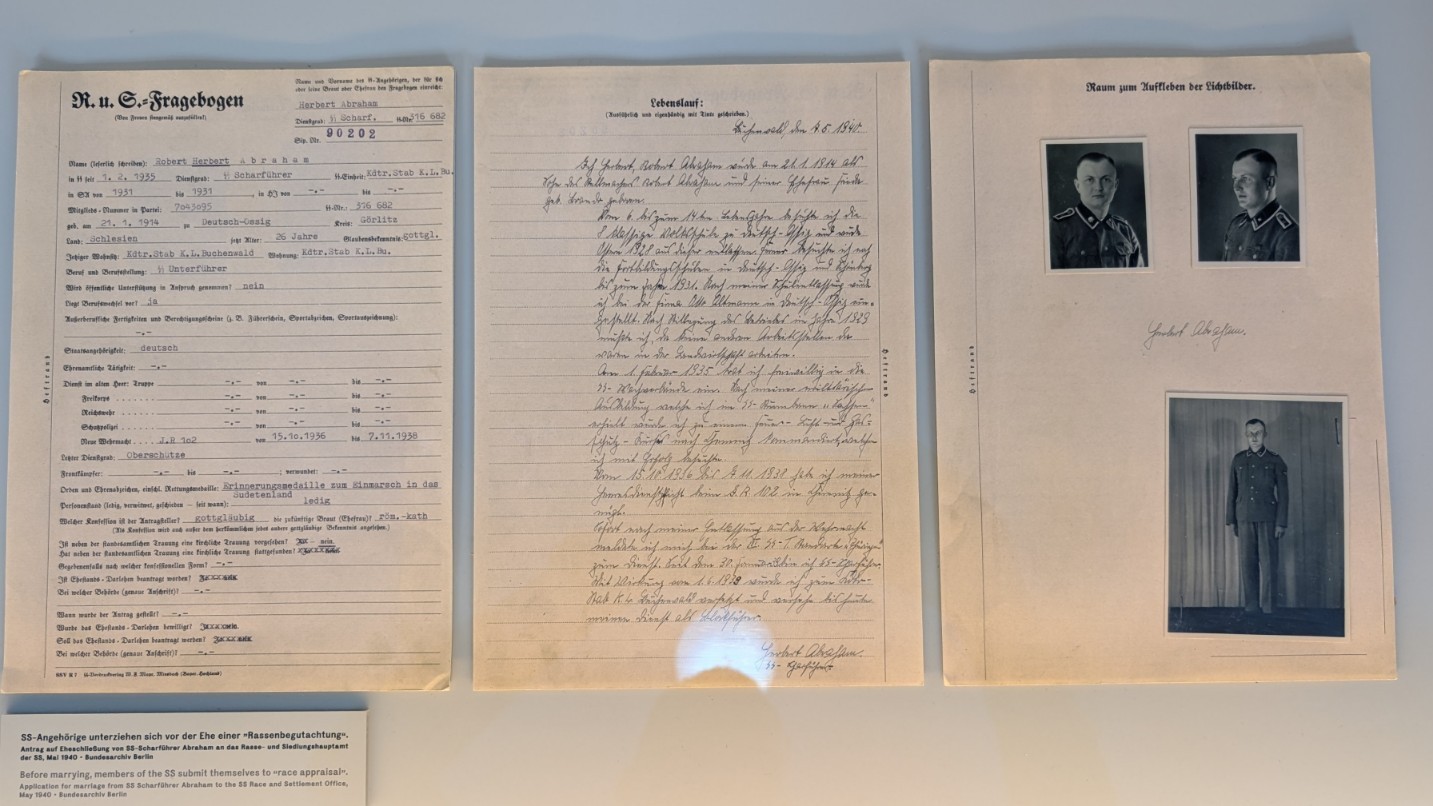 R. u. S.-Fragebogen
(Von Frauen sinngemäß auszufüllen!)
Name und Vorname des SS-Angehörigen, der für sich
oder seine Braut oder Ehefrau den Fragebogen einreicht:
Herbert Abraham
Dienstgrad: SS Scharf. SS-Nr. 316 682
Sip. Nr. 90202
Name (leserlich schreiben): Robert Herbert Abraham
in SS seit 1. 2. 1935 Dienstgrad: SS Scharführer SS-Einheit: Kdtr.Stab K.L.Bu.
in SA von 1931 bis 1931, in HJ von -.- bis -.-
Mitglieds-Nummer in Partei: 7043095 SS-Nr.: 316 682
geb. am 21. 1. 1914 zu Deutsch-Ossig Kreis: Görlitz
Land: Schlesien jetzt Alter: 26 Jahre Glaubensbekenntnis: gottgl.
Jetziger Wohnsitz: Kdtr.Stab K.L.Buchenwald Wohnung: Kdtr.Stab K.L.Bu.
Beruf und Berufsstellung: SS Unterführer
Wird öffentliche Unterstützung in Anspruch genommen? nein
Liegt Berufswechsel vor? ja
Außerberufliche Fertigkeiten und Berechtigungsscheine (z. B. Führerschein, Sportabzeichen, Sportauszeichnung):
-.-
Staatsangehörigkeit: deutsch
Ehrenamtliche Tätigkeit: -.-
Dienst im alten Heer: Truppe -.- von -.- bis -.-
Freikorps -.- von -.- bis -.-
Reichswehr -.- von -.- bis -.-
Schutzpolizei -.- von -.- bis -.-
Neue Wehrmacht J.R 102 von 15.10.1936 bis 7.11.1938
Letzter Dienstgrad: Oberschütze
Frontkämpfer: -.- bis -.-; verwundet: -.-
Orden und Ehrenabzeichen, einschl. Rettungsmedaille: Erinnerungsmedaille zum Einmarsch in das
Sudetenland
Personenstand (ledig, verwitwet, geschieden - seit wann): ledig
Welcher Konfession ist der Antragsteller? gottgläubig die zukünftige Braut (Ehefrau)? röm.-kath
(Als Konfession wird auch außer dem herkömmlichen jedes andere gottgläubige Bekenntnis angesehen.)
Ist neben der standesamtlichen Trauung eine kirchliche Trauung vorgesehen? - nein.
Hat neben der standesamtlichen Trauung eine kirchliche Trauung stattgefunden?
Gegebenenfalls nach welcher konfessionellen Form? -.-
Ist Ehestands-Darlehen beantragt worden?
Bei welcher Behörde (genaue Anschrift)? -.-
Wann wurde der Antrag gestellt? -.-
Wurde das Ehestands-Darlehen bewilligt?
Soll das Ehestands-Darlehen beantragt werden?
Bei welcher Behörde (genaue Anschrift)? -.-
Heftrand
Lebenslauf:
(Ausführlich und eigenhändig mit Tinte geschrieben.)
Buchenwald, den 7.5.1940.
Ich Herbert, Robert Abraham wurde am 21.1.1914 als
Sohn des Stellmachers Robert Abraham und seiner Ehefrau
geb. Brandt geboren.
Vom 6. bis zum 14ten Lebensjahre besuchte ich die
8 klassige Volksschule zu Deutsch-Ossig und wurde
Ostern 1928 aus dieser entlassen. Ferner besuchte ich noch
die Fortbildungsschule in Deutsch-Ossig und
bis zum Jahre 1931. Nach meiner Schulentlassung wurde
ich bei der Firma Otto Altmann in Deutsch-Ossig ein-
gestellt. Nach Stillegung des Betriebes im Jahre 1929
mußte ich, da keine anderen Arbeitsstellen da
waren in der Landwirtschaft arbeiten.
Am 1. Februar 1935 trat ich freiwillig in die
SS-Wachverbände ein. Nach meiner militärischen
Ausbildung welche ich im SS-Sturmbann „Sachsen“
erhielt wurde ich zu einem Feuer-Luft und Gas-
schutz-Kursus nach kommandiert, welchen
ich mit Erfolg besuchte.
Vom 15.10.1936 bis 7.11.1938 habe ich meiner
Heeresdienstpflicht beim J.R 102 in Chemnitz ge-
nügt.
Sofort nach meiner Entlassung aus der Wehrmacht
meldete ich mich bei der SS-T. Standarte „Thüringen“
zum Dienst. Seit dem 30. Januar bin ich SS-Scharführer.
Mit Wirkung vom 1.6.1939 wurde ich zum Kdtr.-
Stab K.L. Buchenwald versetzt und versehe bis heute
meinen Dienst als Blockführer.
Herbert Abraham.
SS-Scharführer
Heftrand
Raum zum Aufkleben der Lichtbilder.
Herbert Abraham.
Heftrand
SS-Angehörige unterziehen sich vor der Ehe einer »Rassenbegutachtung«.
Antrag auf Eheschließung von SS-Scharführer Abraham an das Rasse- und Siedlungshauptamt
der SS, Mai 1940 • Bundesarchiv Berlin
Before marrying, members of the SS submit themselves to »race appraisal«.
Application for marriage from SS Scharführer Abraham to the SS Race and Settlement Office,
May 1940 • Bundesarchiv Berlin